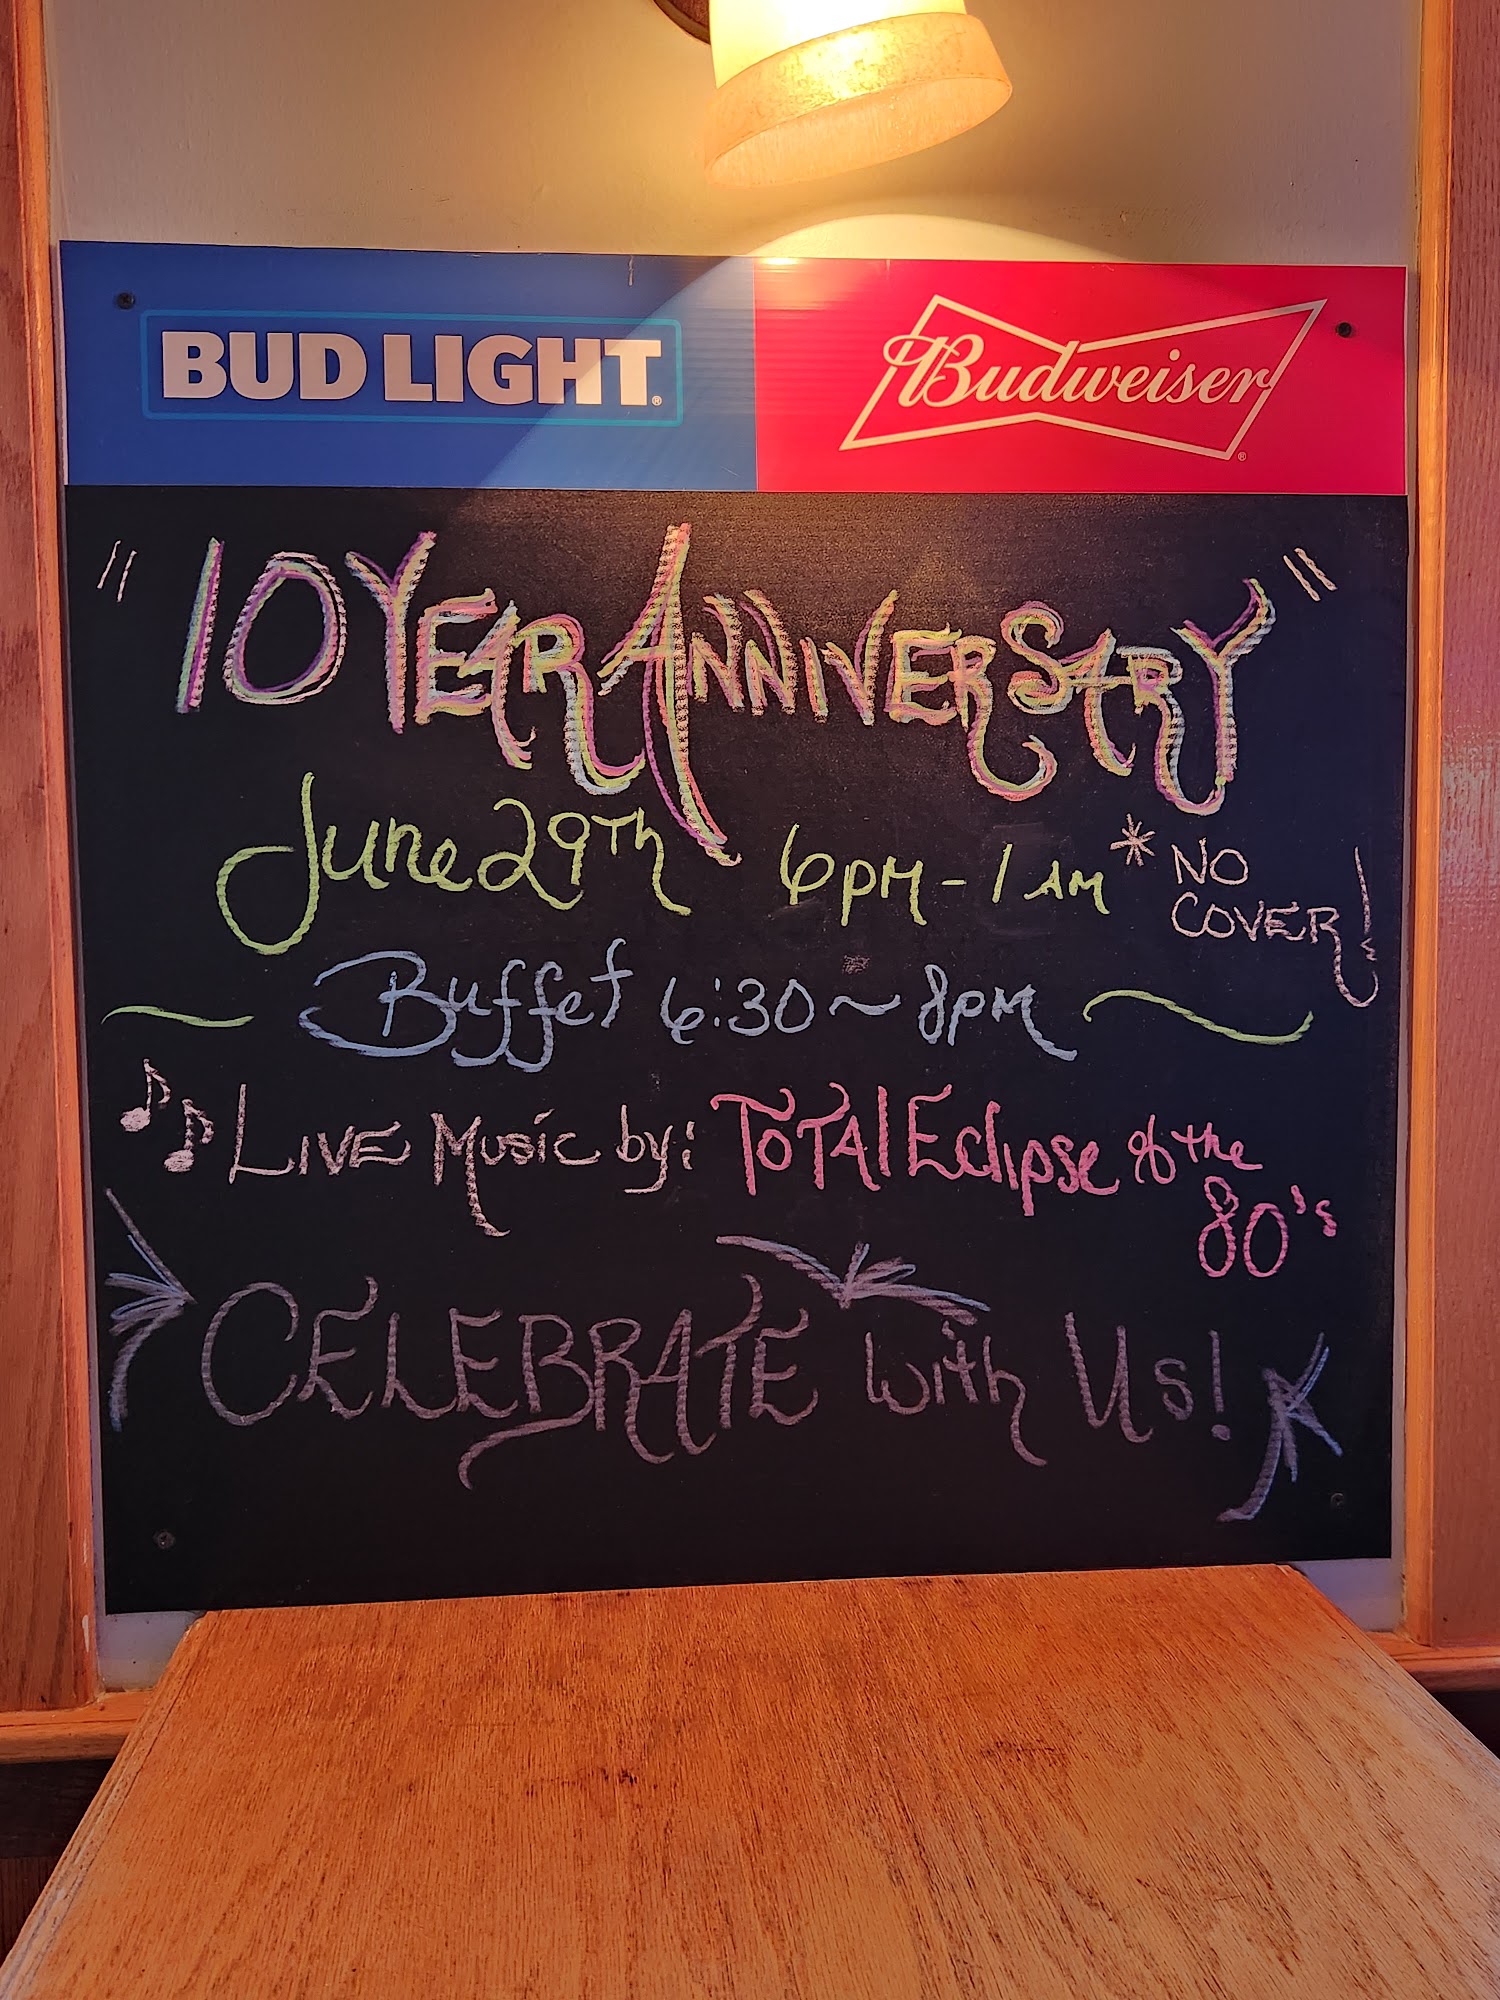 BUD LIGHT®
Budweiser®
"10 YEAR ANNIVERSARY"
June 29Th 6PM - 1 AM * NO
COVER!
~ Buffet 6:30 ~ 8PM ~
♪♪ LIVE Music by: ToTAl Eclipse of the
80's
CELEBRATE with Us!